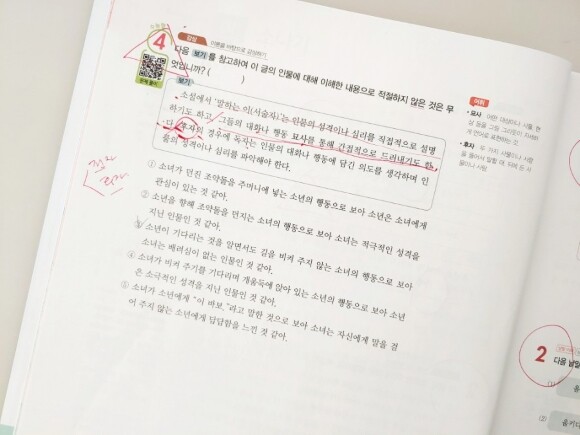 4
감상
이론을 바탕으로 감상하기
다음 보기 를 참고하여 이 글의 인물에 대해 이해한 내용으로 적절하지 않은 것은 무
엇입니까? ( )
보기
소설에서 '말하는 이(서술자)'는 인물의 성격이나 심리를 직접적으로 설명
하기도 하고, 그들의 대화나 행동 묘사를 통해 간접적으로 드러내기도 한
다. 후자의 경우에 독자는 인물의 대화나 행동에 담긴 의도를 생각하며 인
물의 성격이나 심리를 파악해야 한다.
① 소녀가 던진 조약돌을 주머니에 넣는 소년의 행동으로 보아 소년은 소녀에게
관심이 있는 것 같아.
② 소년을 향해 조약돌을 던지는 소녀의 행동으로 보아 소녀는 적극적인 성격을
지닌 인물인 것 같아.
③ 소년이 기다리는 것을 알면서도 길을 비켜 주지 않는 소녀의 행동으로 보아
소녀는 배려심이 없는 인물인 것 같아.
④ 소녀가 비켜 주기를 기다리며 개울둑에 앉아 있는 소년의 행동으로 보아 소년
은 소극적인 성격을 지닌 인물인 것 같아.
⑤ 소녀가 소년에게 "이 바보."라고 말한 것으로 보아 소녀는 자신에게 말을 걸
어 주지 않는 소년에게 답답함을 느낀 것 같아.
어휘
• 묘사 어떤 대상이나 사물, 현
• 후자 두 가지 사물이나 사람
2
다음 낱말
(1)
(2)